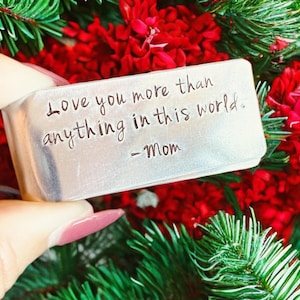 Love you more than
anything in this world.
-Mom